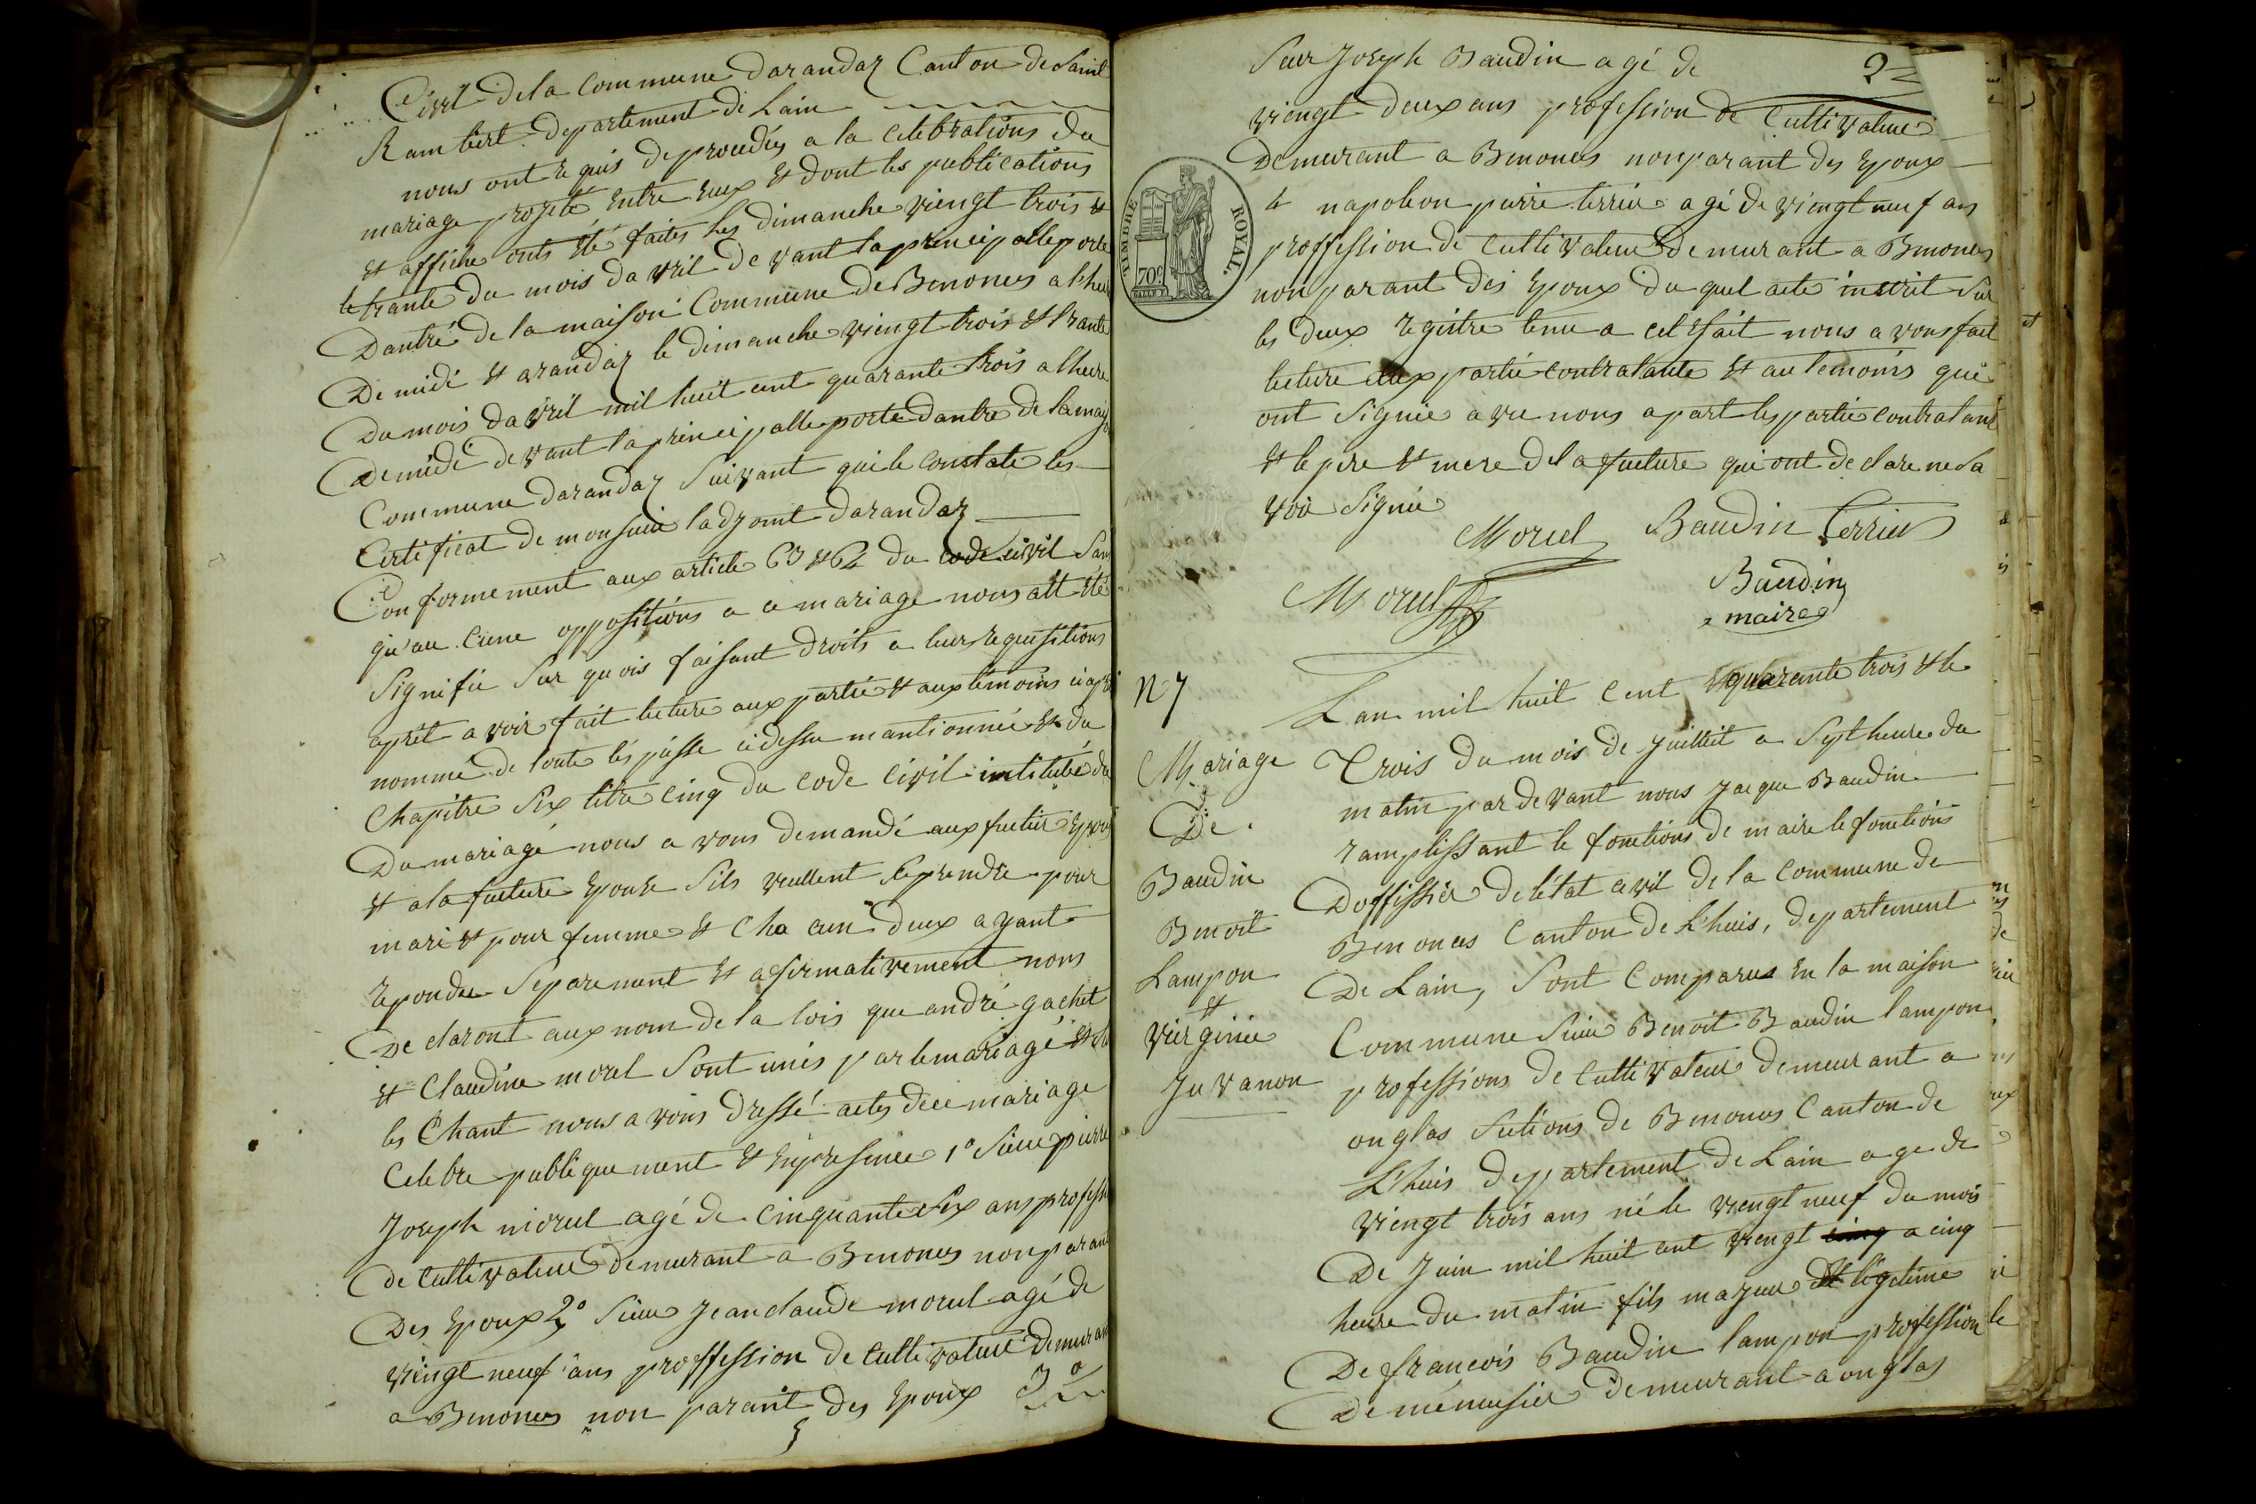 Civil de la commune darandaz Canton de Saint
Rambert departement de Lain
nous ont requis de proceder a la celebrations du
mariage projeté Entre Eux Et dont les publications
Et affiche onts Eté faites les dimanche viengt trois &
le trante du mois davril devant la principalle porte
Dantré de la maison Commune de Benonces a lheur
De midi Et arandaz le dimanche viengt trois Et trante
Du mois davril mil huit cent quarante trois a lheure
de midi devant la principalle porte dantre de la mais
Commune darandaz Suivant qui le constate les
Certificat de monsieur ladjoint darandaz
Conformement aux article 63 Et 64 du code civil San
qu'au cune oppositions a ce mariage nous att Eté
Signifié Sur quois faisant droits a leurs requisitions
apret avoir fait lecture aux partie Et aux temoins ci apré
nommé de toute les piesse cidessu mantionnée Et du
Chapitre Six titre cinq du code civil intitulé du
Du mariagé nous avons demandé aux futur Epoux
Et a la future Epouse Sils veullent Se prendre pour
mari Et pour femme Et Cha cun deux ayant
repondu Separement Et afirmativement nous
De claront aux nom de la lois que andré gachet
Et Claudine morel Sont unis par le mariagé Et
les Chant nous avons dressé actes de ce mariage
Celebre publiquement Et En presence 1° Sieur pierre
Joseph morel agé de Cinquante Six ans professi
de Cultivateur demeurant a Benonces non parant
Des Epoux 2° Sieur Jean claude morel agé de
viengt neuf ans proffession de Cultivateur Demeurant
a Benonces non parant des Epoux 3°
Sieur Joseph Baudin agé de
2
viengt deux ans profession de Cultivateur
Demeurant a Benonces non parant des Epoux
4 napoleon pierre terrier agé de viengt neuf ans
proffession de Cultivateur demeurant a Benonces
non parant des Epoux du quel acte inscrit Sur
les deux registre tenu a cet Efait nous avons fait
lecture aux partie contratante Et au temoins qui
ont Signié avec nous apart les partie contratant
Et le pere Et mere de la future qui ont declare ne Sa
voir Signié
TIMBRE ROYAL.
70c
Morel Baudin Terrier
Morel Baudin
maire
N 7
Mariage
De
Baudin
Benoit
Lampon
Et
Virginie
Juvanon
Lan mil huit Cent quarante trois & le
Trois du mois de Juilliet a Sept heure du
matin par devant nous Jacque Baudin
ramplissant le fonctions de maire le fonctions
Doffissier de létat civil de la Commune de
Benonces Canton de Lhuis, departement
De Lain, Sont Comparus En la maison
Commune Sieur Benoit Baudin lampon
professions de Cultivateur demeurant a
onglas Sections de Benonces Canton de
Lhuis departement de Lain age de
viengt trois ans né le viengt neuf du mois
De Juin mil huit cent viengt cinq a cinq
heure du matin fils majeur Et légetime
De francois Baudin lampon profession
De ménuisier demeurant a onglas